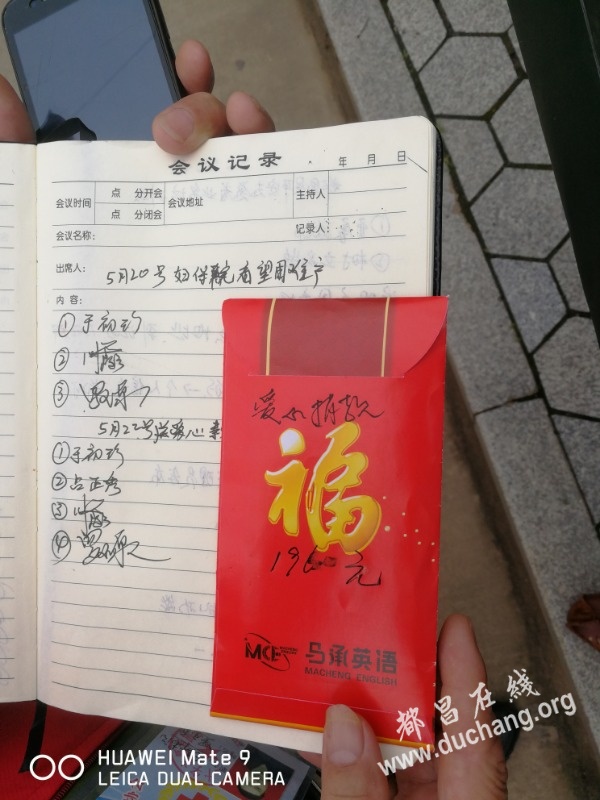 会议记录 年 月 日
会议时间 点 分开会 会议地址 主持人
点 分闭会
会议名称: 记录人:
出席人: 5月20号妇保院看望困难户
内容:
① 于初珍
②
③
5月22号送爱心
① 于初珍
② 占正秀
③
④
爱心捐款
福
1960元
MCE 马承英语
MACHENG ENGLISH
都昌在线
www.duchang.org
HUAWEI Mate 9
LEICA DUAL CAMERA